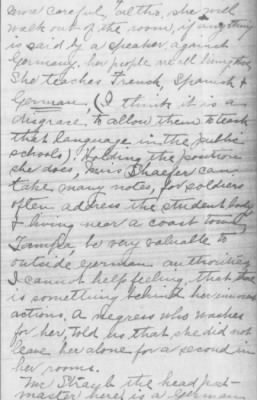 more careful, altho, she will
walk out of the room, if anything
is said by a speaker against
Germany, her people
She teaches French, Spanish &
German, (I think it is a
disgrace to allow them to teach
that language in the public
schools). Holding the position
she does, Miss Shaefer can
take many notes, for soldiers
often address the student body
& living near a coast town
Tampa, be very valuable to
outside German authorities
I cannot help feeling, that there
is something behind her
actions. A negress who washes
for her, told us that she did not
leave her alone for a second in
her rooms.
Mr Strayb the head post-
master here is a German